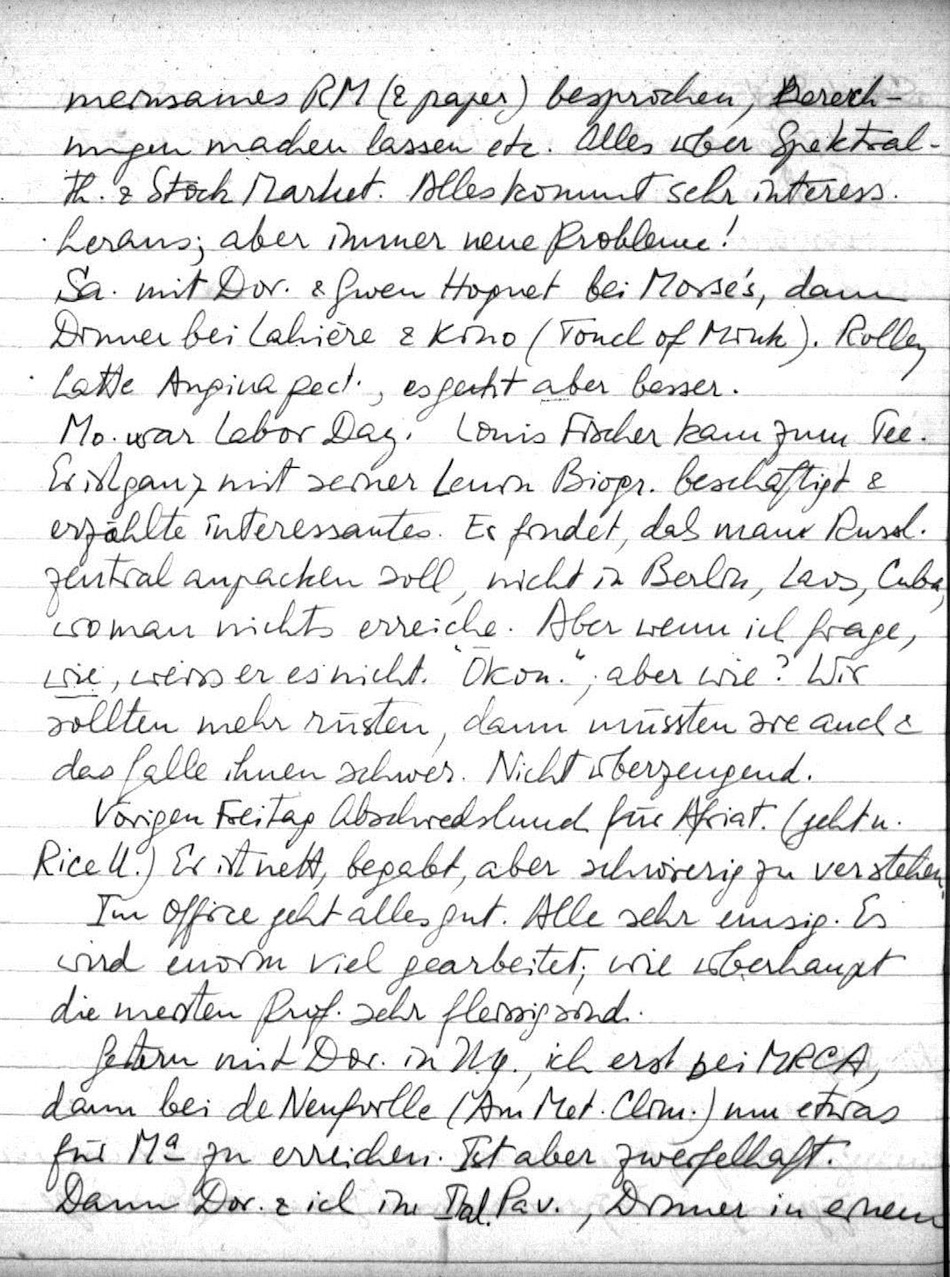 meinsames RM (& paper) besprochen, Berech-
nungen machen lassen etc. Alles über Spektral-
Th. & Stock Market. Alles kommt sehr interess.
heraus; aber immer neue Probleme!
Sa. mit Dor. & Gwen bei Morse's, dann
Dinner bei Lahière & Kino (Touch of Mink).
hatte Angina pect., es geht aber besser.
Mo. war Labor Day. Louis Fischer kam zum Tee.
Er ist ganz mit seiner Lenin Biogr. beschäftigt &
erzählte interessantes. Er findet, das man Russl.
zentral anpacken soll, nicht in Berlin, Laos, Cuba,
wo man nichts erreiche. Aber wenn ich frage,
wie, weiss er es nicht. "Ökon.", aber wie? Wir
sollten mehr rüsten, dann müssten sie auch &
das falle ihnen schwer. Nicht überzeugend.
Vorigen Freitag Abschiedslunch für Afriat. (geht n.
Rice U.) Er ist nett, begabt, aber schwierig zu verstehen
Im Office geht alles gut. Alle sehr emsig. Es
wird enorm viel gearbeitet; wie überhaupt
die meisten Prof. sehr fleissig sind.
Gestern mit Dor. in N.Y., ich erst bei MRCA,
dann bei de Neufville (Am Met. Clim.) um etwas
für Ma zu erreichen. Ist aber zweifelhaft.
Dann Dor. & ich im Ital. Pav., Dinner in einem